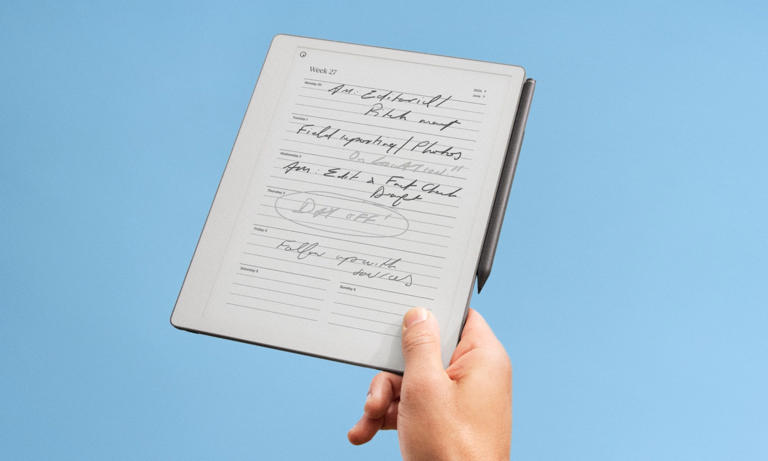 Week 27
Monday 30
AM: Editorial/
Pitch
Tuesday 1
Field reporting / Photos
On location!!
Wednesday 2
AM: Edit & Fact Check
Draft
Thursday 3
Day off!
Friday 4
Follow up with
sources
Saturday 5
Sunday 6